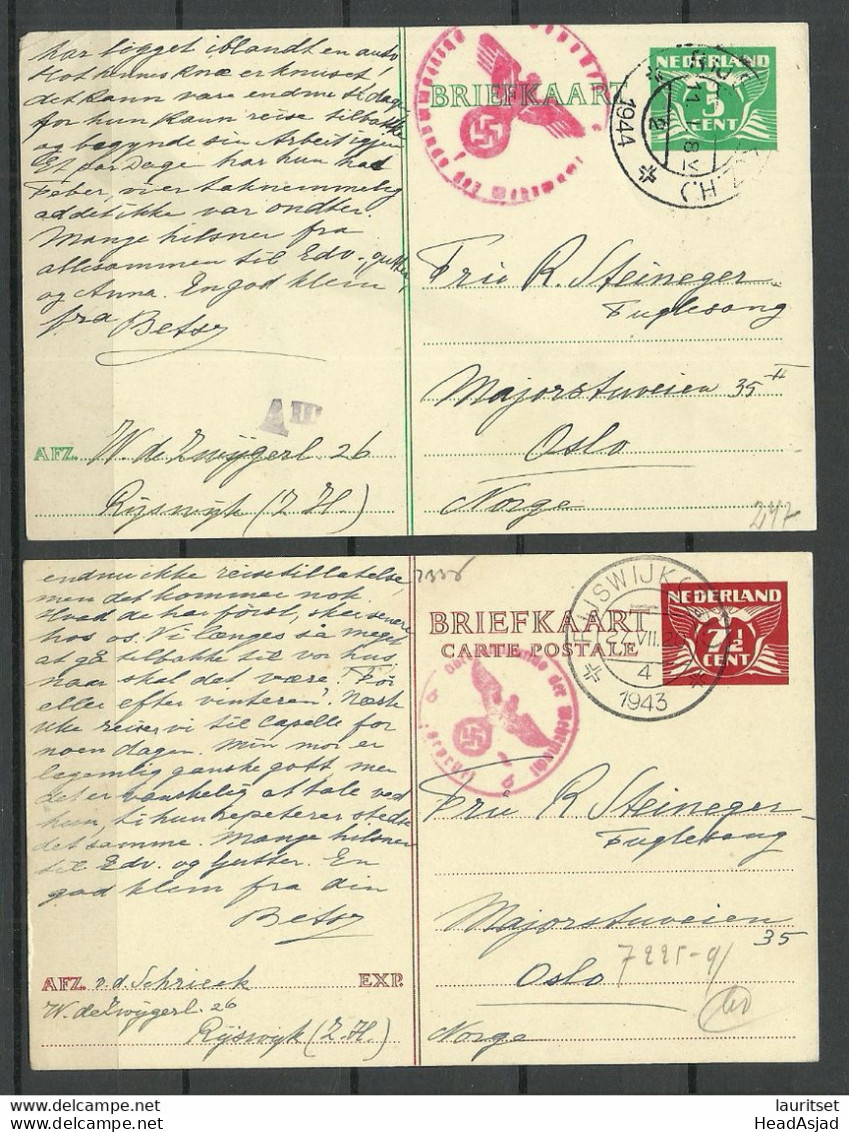 har ligget iblandt en auto
Hot hennes Knæ er knuset!
det kann vare endnu st. dage
for hun Kann reise tilbakke
og begynde sin Arbeit igjen
Et par Dage har hun had
Feber, vi er taknemmelig
ad det ikke var ondter.
Mange hilsner fra
allesammen til Edv., gutter,
og Anna. En god klem
fra Betsy
AIII
AFZ. W. de Zwijgerl 26
Rijswijk (Z.H.)
BRIEFKAART
NEDERLAND
5
CENT
1944
Fru R. Steineger
Fuglesang
Majorstuveien 35 II
Oslo
Norge
247
endnu ikke reisetillatelse,
men det kommer nok.
Hvad de har først, sker senere
hos os. Vi længes så meget
at gå tilbakke til vor hus,
naar skal det være? Før
eller efter vinteren? Næste
Uke reiser vi til Capelle for
noen dagen. Min mor er
legemlig ganske gott, men
det er vanskelig at tale ved
hun, ti hun repeterer stedse
det samme. Mange hilsner
til Edv. og Gutter. En
god klem fra din
Betsy
AFZ. v. d. Schrieck EXP.
W. de Zwijgerl. 26
Rijswyk (Z.H.)
BRIEFKAART
CARTE POSTALE
NEDERLAND
7½
CENT
RIJSWIJK
27 VII
4
1943
Oberkommando der Wehrmacht
geprüft
b
Fru R Steineger
Fuglesang
Majorstuveien
35
Oslo
Norge
lauritset
HeadAsjad